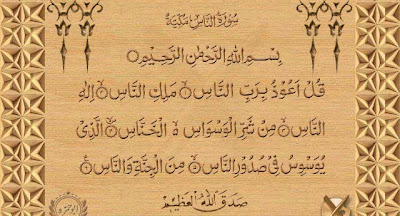 سُورَةُ النَّاسِ مَكِّيَّةٌ
بِسْمِ اللهِ الرَّحْمٰنِ الرَّحِيْمِ
قُلْ اَعُوْذُ بِرَبِّ النَّاسِ ۙ مَلِكِ النَّاسِ ۙ اِلٰهِ
النَّاسِ ۙ مِنْ شَرِّ الْوَسْوَاسِ ۙ الْخَنَّاسِ ۙ الَّذِیْ
یُوَسْوِسُ فِیْ صُدُوْرِ النَّاسِ ۙ مِنَ الْجِنَّةِ وَالنَّاسِ
صَدَقَ اللهُ الْعَظِيْمُ